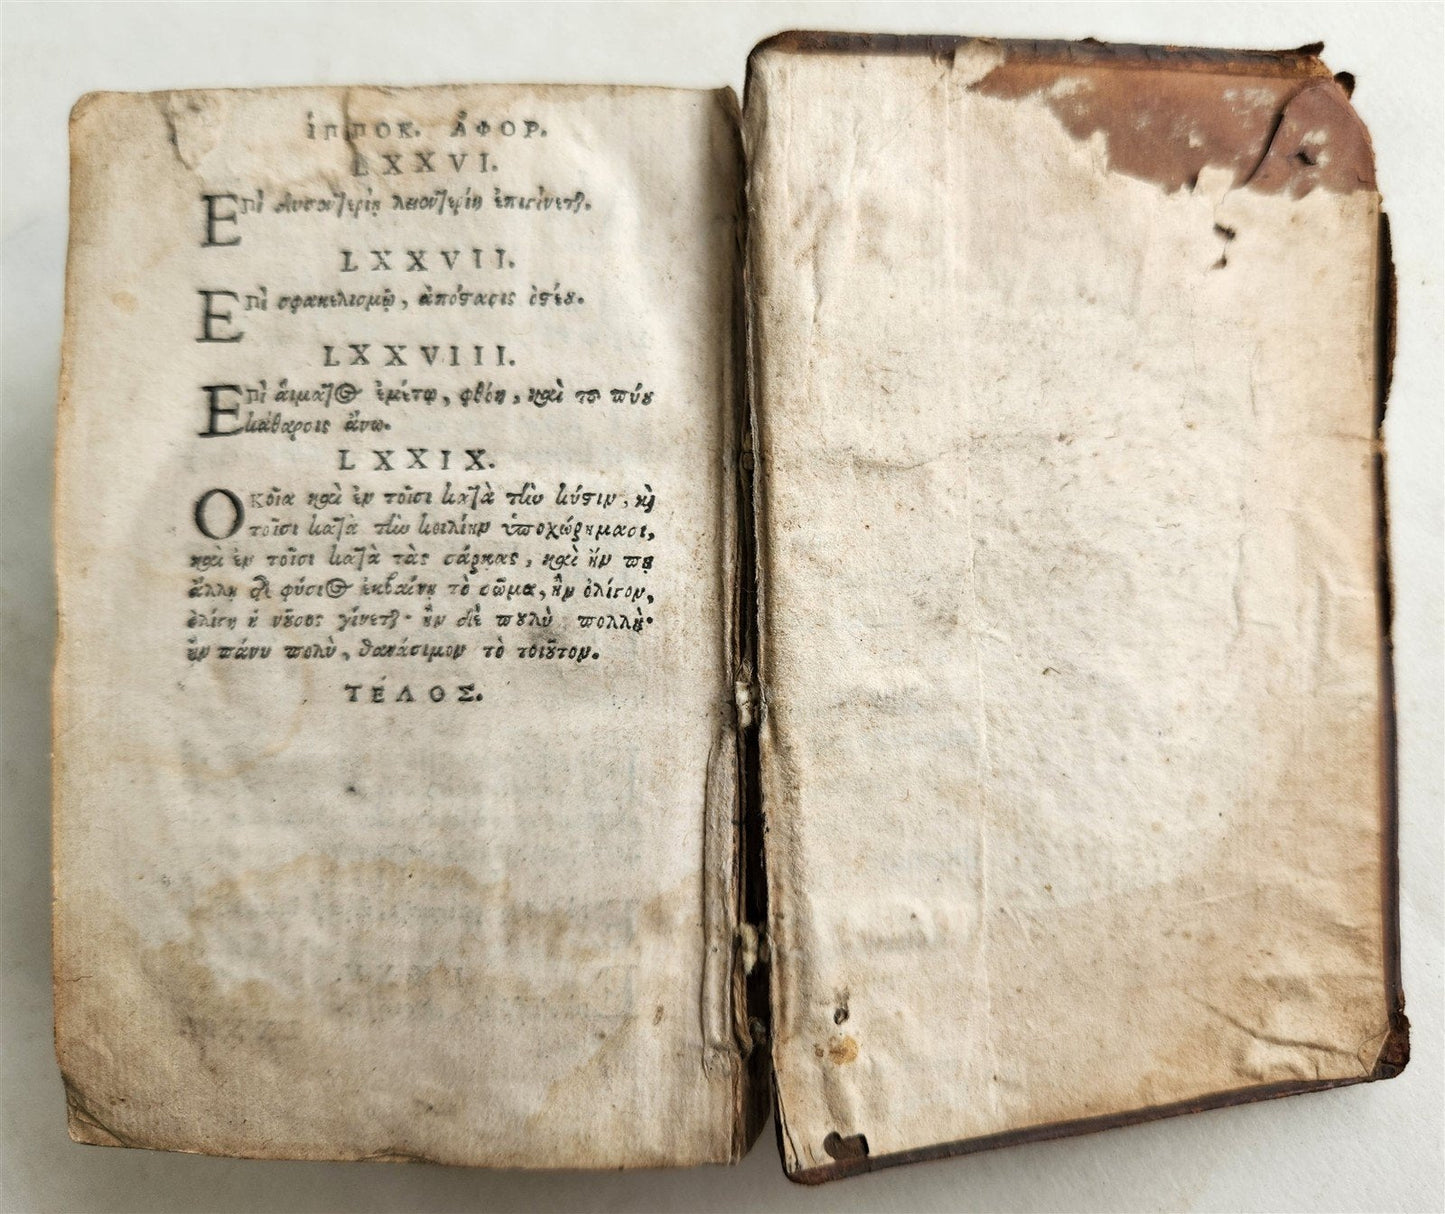 ἹΠΠΟΚ. ἈΦΟΡ.
LXXVI.
ΕΠὶ δυσεντερίῃ λειεντερίη ἐπιγίνεται.
LXXVII.
ΕΠὶ σφακελισμῷ, ἀπόστασις ὀστέου.
LXXVIII.
ΕΠὶ αἵματος ἐμέτῳ, φθόη, καὶ τοῦ πύου
κάθαρσις ἄνω.
LXXIX.
ΟΚοῖα καὶ ἐν τοῖσι κατὰ τὴν κύστιν, καὶ
τοῖσι κατὰ τὴν κοιλίην ὑποχώρημασι,
καὶ ἐν τοῖσι κατὰ τὰς σάρκας, καὶ ἤν πῃ
ἄλλῃ δὲ φύσιος ἐκβαίνῃ τὸ σῶμα, ἢν ὀλίγον,
ὀλίγη ἡ νοῦσος γίνεται· ἢν δὲ πουλὺ πολλὴ·
ἢν πάνυ πολὺ, θανάσιμον τὸ τοιοῦτον.
ΤΈΛΟΣ.